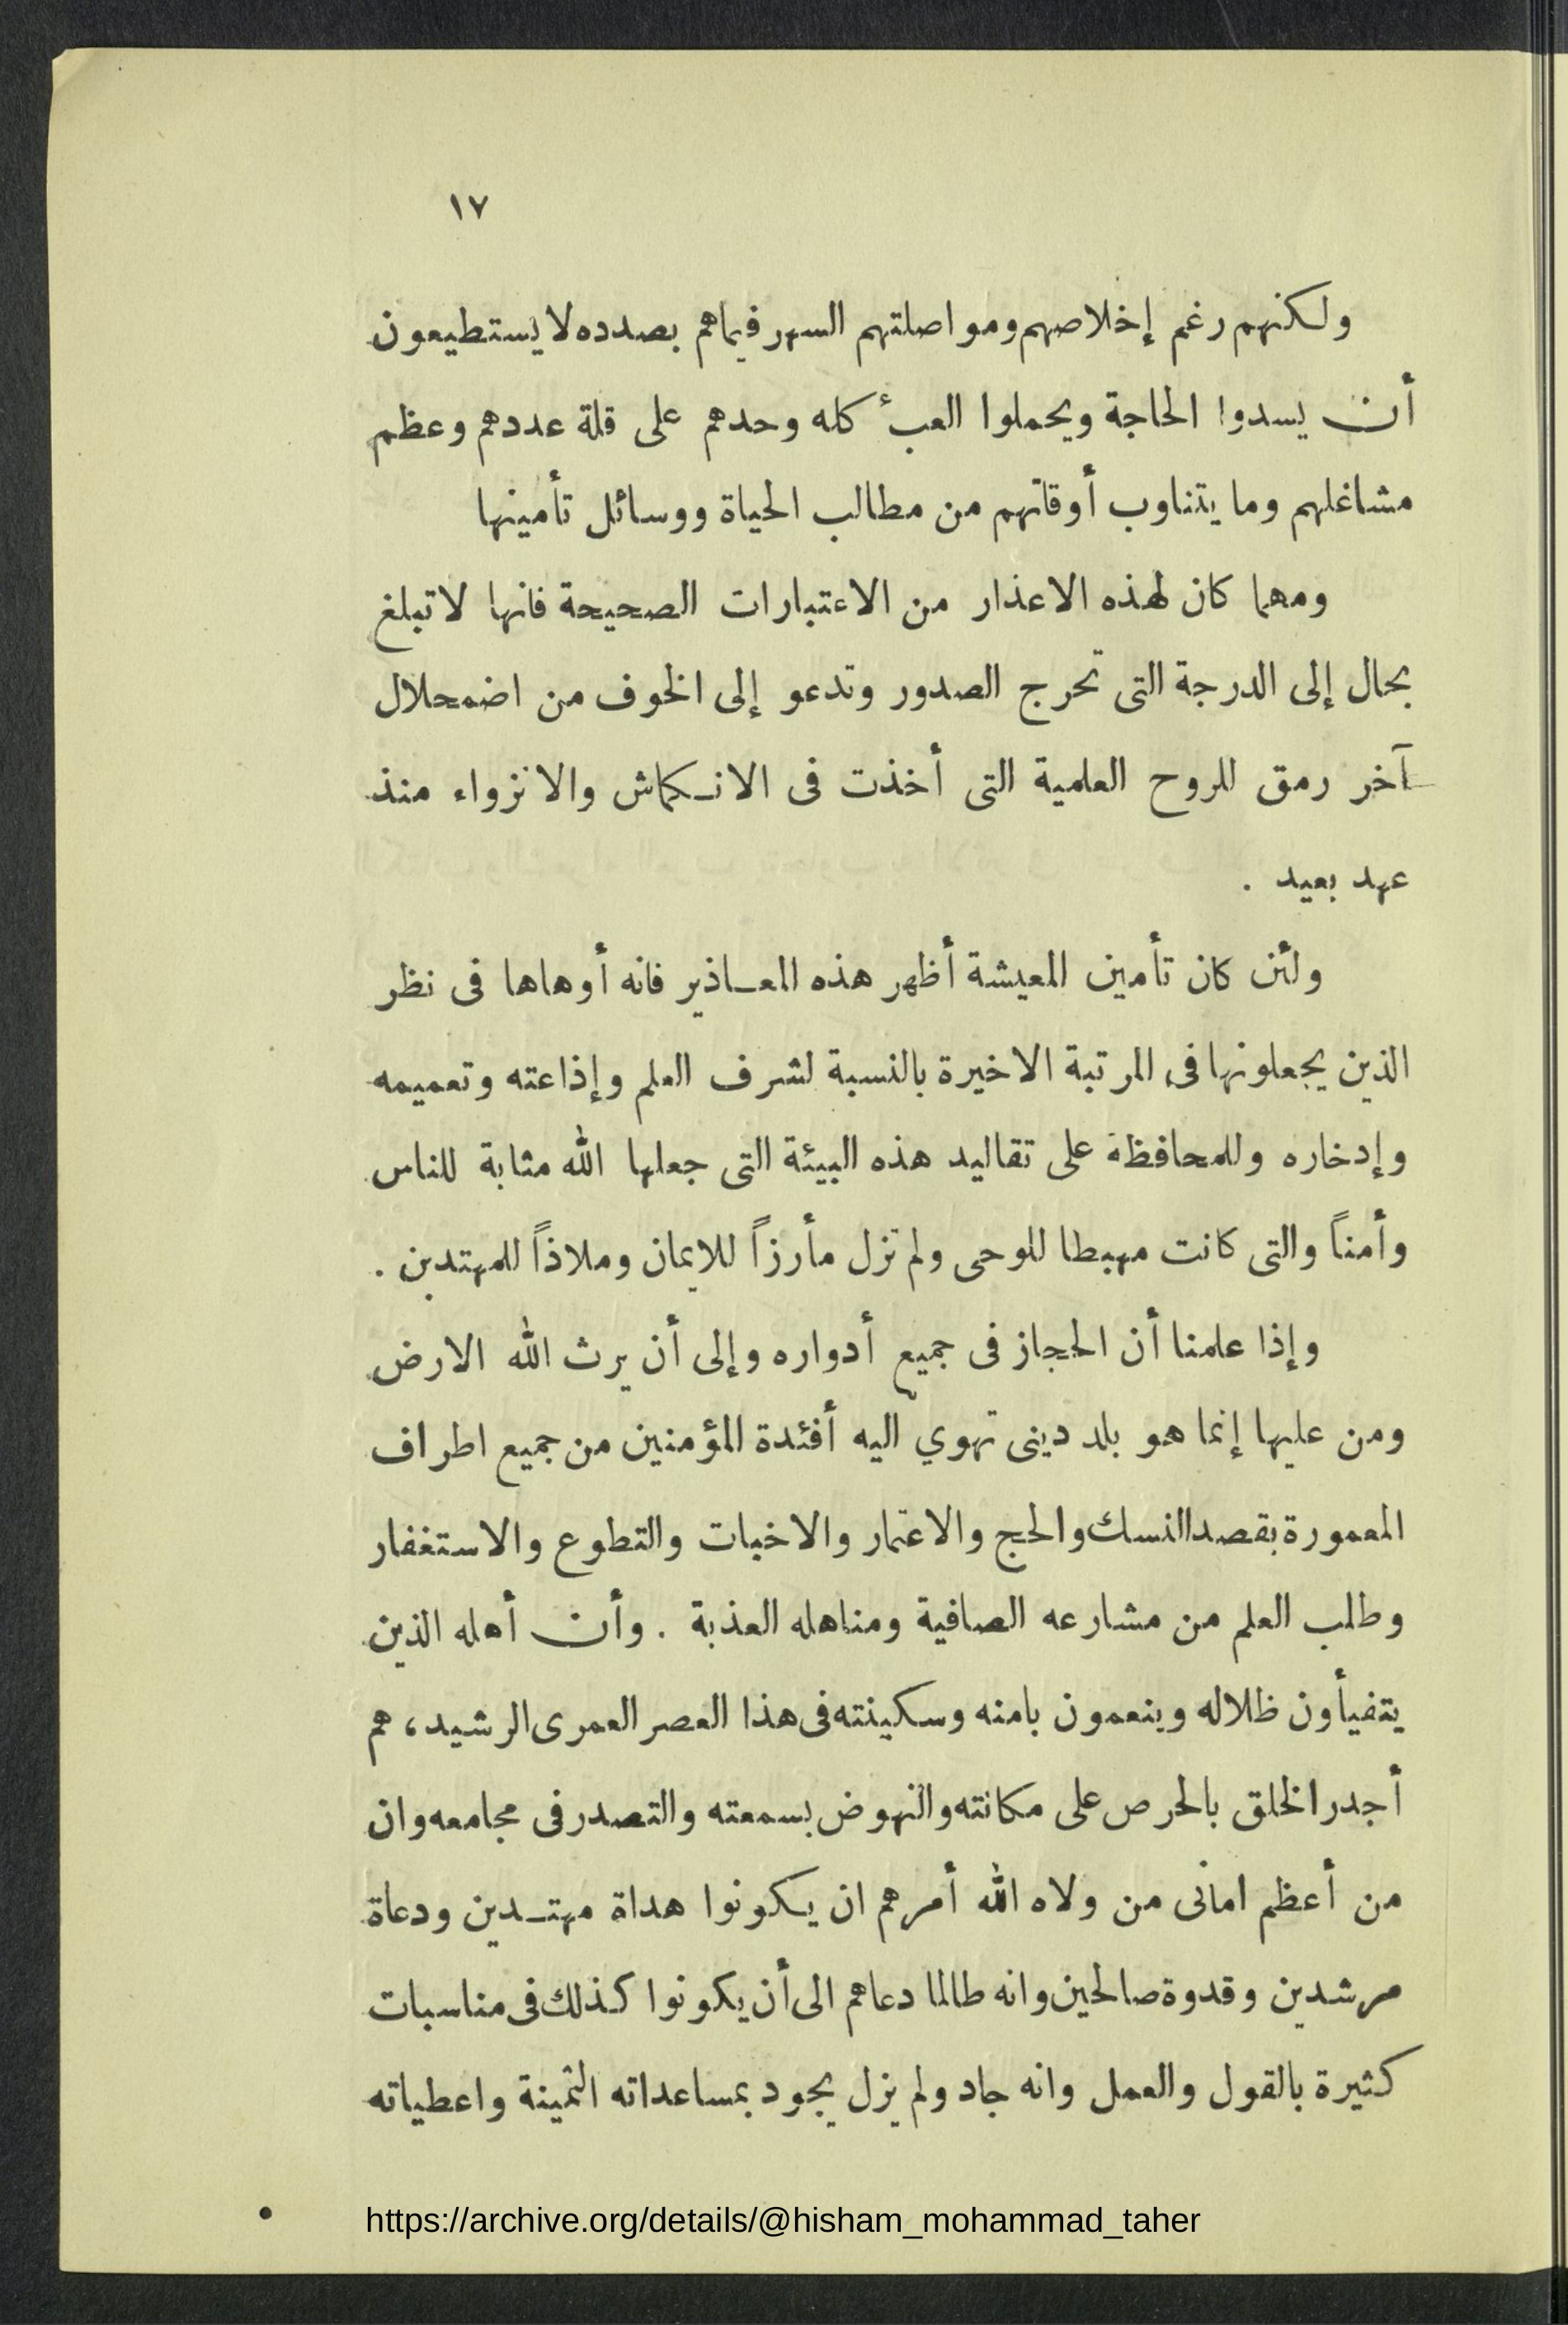 ١٧
ولكنهم رغم إخلاصهم ومواصلتهم السهر فيما هم بصدده لا يستطيعون
أن يسدوا الحاجة ويحملوا العبء كله وحدهم على قلة عددهم وعظم
مشاغلهم وما يتناوب أوقاتهم من مطالب الحياة ووسائل تأمينها
ومهما كان لهذه الاعذار من الاعتبارات الصحيحة فانها لا تبلغ
بحال إلى الدرجة التى تحرج الصدور وتدعو إلى الخوف من اضمحلال
آخر رمق للروح العلمية التى أخذت فى الانكماش والانزواء منذ
عهد بعيد .
ولئن كان تأمين المعيشة أظهر هذه المعاذير فانه أوهاها فى نظر
الذين يجعلونها فى المرتبة الاخيرة بالنسبة لشرف العلم وإذاعته وتعميمه
وإدخاره وللمحافظة على تقاليد هذه البيئة التى جعلها الله مثابة للناس
وأمناً والتى كانت مهبطا للوحى ولم تزل مأرزاً للايمان وملاذاً للمهتدين .
وإذا علمنا أن الحجاز فى جميع أدواره وإلى أن يرث الله الارض
ومن عليها إنما هو بلد دينى تهوي اليه أفئدة المؤمنين من جميع اطراف
المعمورة بقصد النسك والحج والاعتمار والاخبات والتطوع والاستغفار
وطلب العلم من مشارعه الصافية ومناهله العذبة . وأن أهله الذين
يتفيأون ظلاله وينعمون بامنه وسكينته فى هذا العصر العمرى الرشيد، هم
أجدر الخلق بالحرص على مكانته والنهوض بسمعته والتصدر فى مجامعه وان
من أعظم امانى من ولاه الله أمرهم ان يكونوا هداة مهتدين ودعاة
مرشدين وقدوة صالحين وانه طالما دعاهم الى أن يكونوا كذلك فى مناسبات
كثيرة بالقول والعمل وانه جاد ولم يزل يجود بمساعداته الثمينة واعطياته
https://archive.org/details/@hisham_mohammad_taher